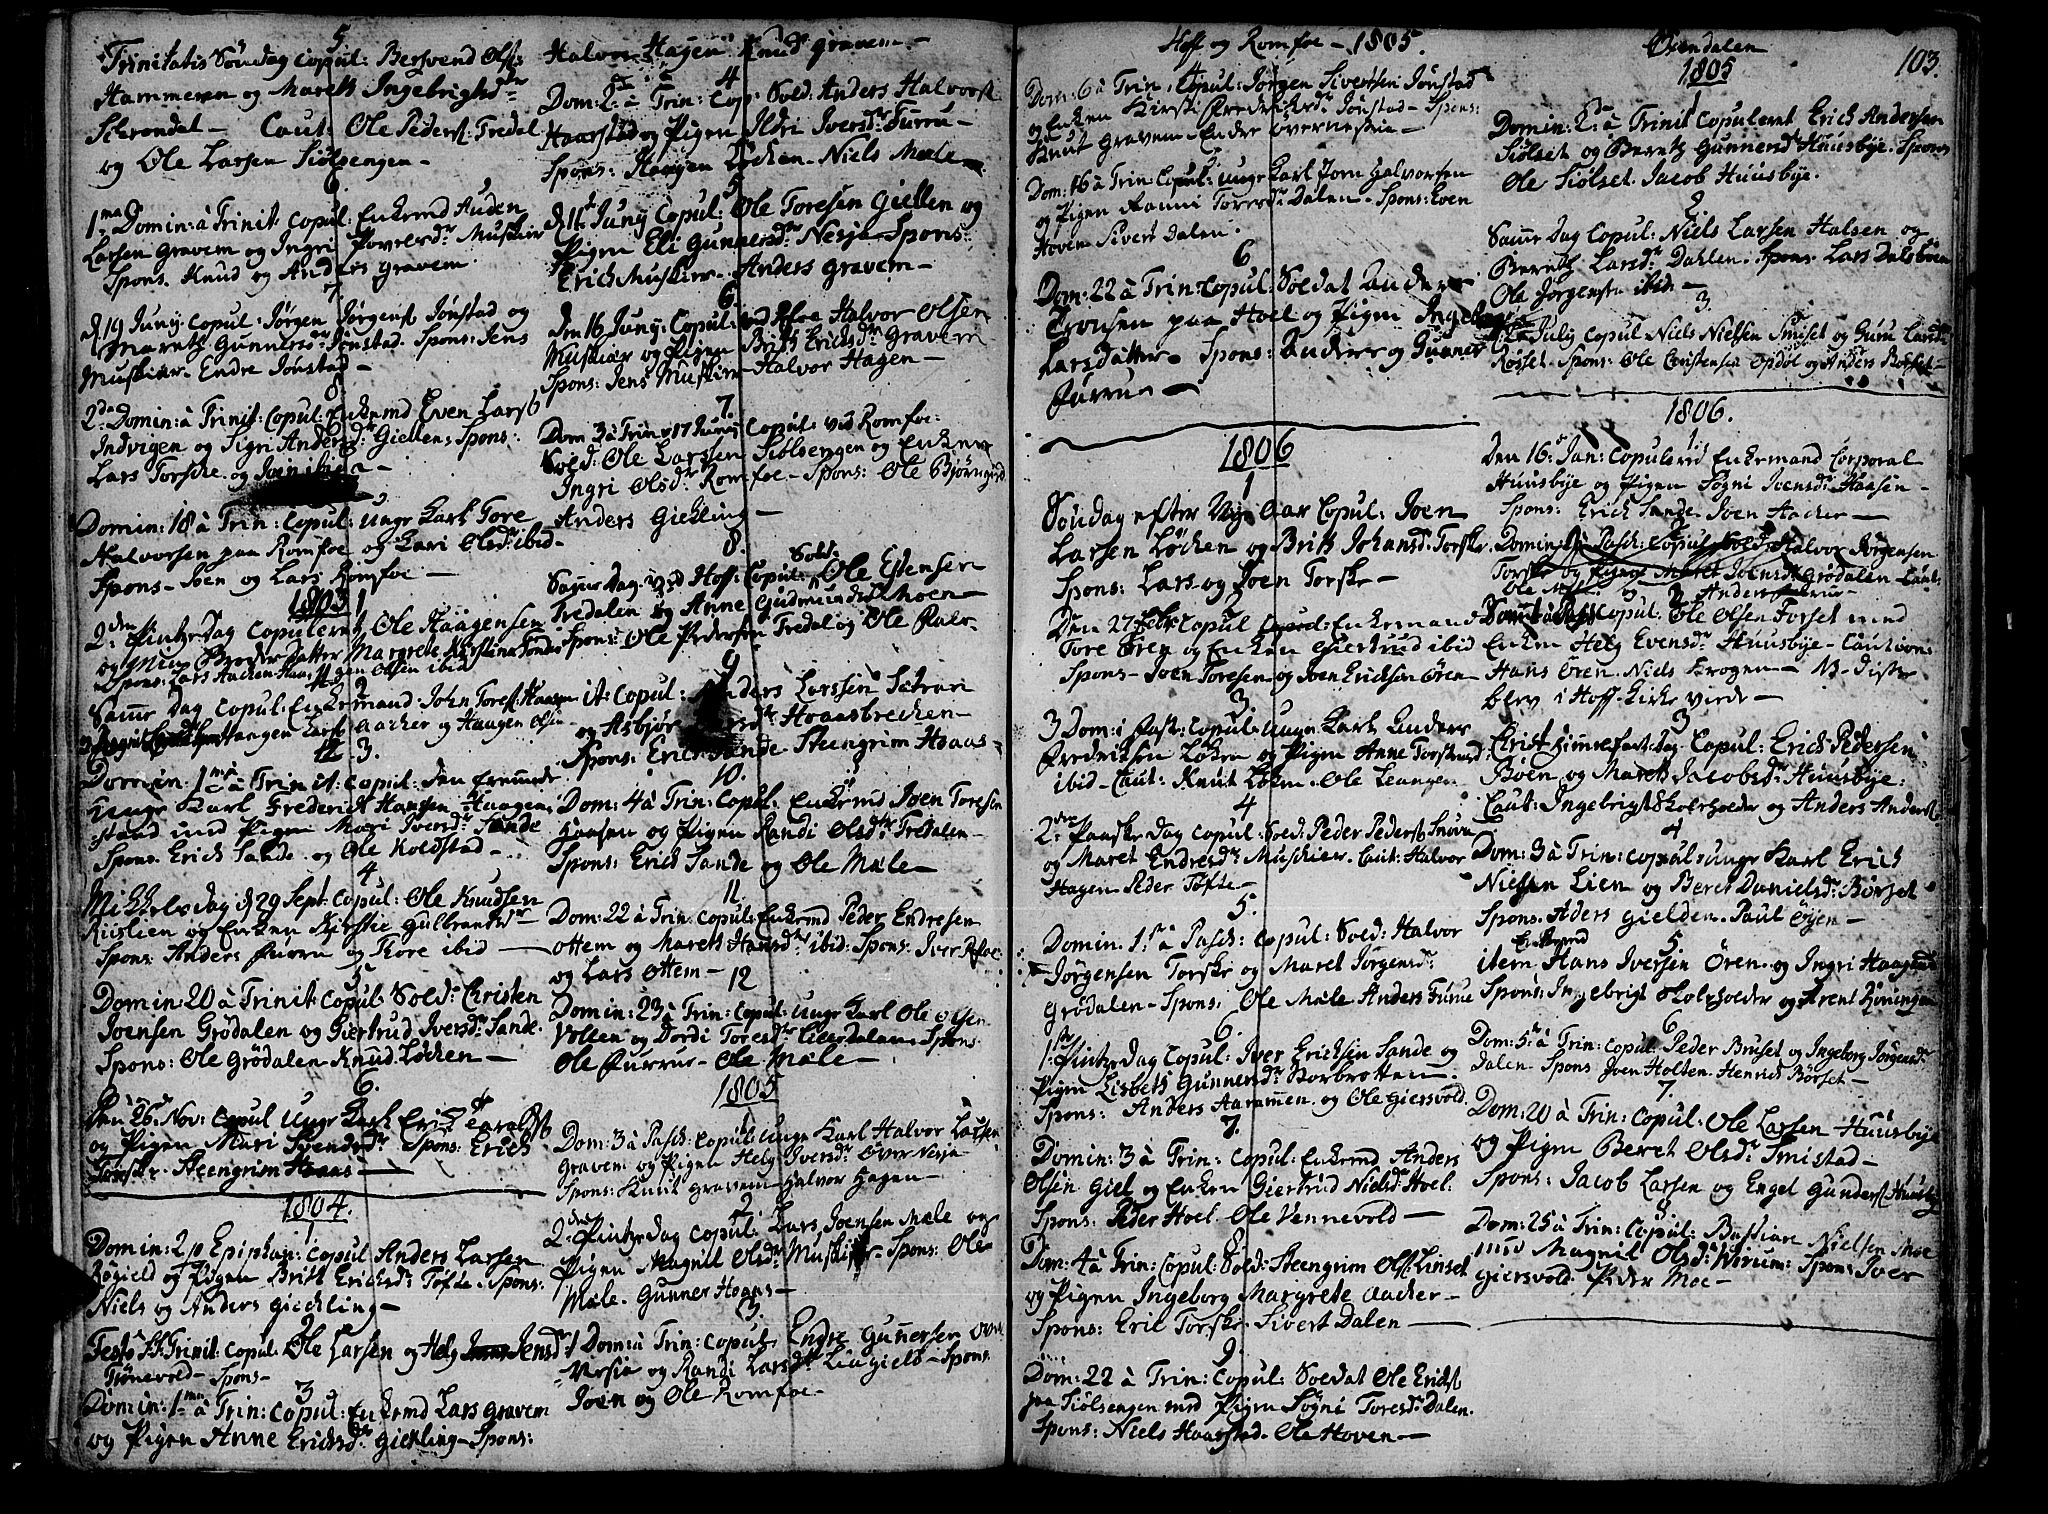 5
Trinitatis Søndag copul: Bersvend Ols:
Hammeren og Marett Ingebrighsdr
Schrondal – Caut: Ole Pederst: Tredal
og Ole Larsen Siølsengen –
6
1ma Domin: à Trinit: copul: Enkemd Auden
Larsen Gravem og Ingri Povelsdr Muskier
Spons. Knud og Anders Gravem
7
d 19 Juny copul: Jørgen Jørgenst Jønstad og
Maret Gunnersdr Jønstad. Spons: Jens
Muskier. Endre Jønstad –
8
2da Domin: à Trinit: Copul: Enkemd Even Larst
Indvigen og Sigri Andersdr Giellen. Spons:
Lars Torske og Joen ibid –
Domin: 18 à Trin: Copul: unge Karl Tore
Halvorsen paa Romfoe og Kari Olsdr ibid –
Spons – Joen og Lars Romfoe –
1803
1
2den Pintze Dag Copuleret Ole Haagensen
og min Broder Datter Margrete Kirstina
Spons: Lars Aacker. Haagen Olsen ibid
2
Samme Dag Copul: Enkemand John Torest Haasen
Haagen Larst Aacker og Haagen Olsen
3
Domin: 1ma à Trinit: copul: den
unge Karl Frederich Hansen Haagen-
stand med Pigen Mari Iversdr Sande
Spons. Erich Sande og Ole Koldstad –
4
Mikkels dag d 29 Sept: copul: Ole Knudsen
og Enken Kirstie Gulbransdr –
Spons: Anders Furru og Tore ibid –
5
Domin: 20 à Trinit: Copul: Sold: Christen
Joensen Grødalen og Giertrud Iversdr Sande.
Spons: Ole Grødalen. Knud Løcken –
6.
Den 26 Nov: Copul unge Karl Eric
og Pigen Mari Svendsdr Spons: Erich
Torske – Steengrim Haas –
1804.
1
Domin: 2 p Epiphan: Copul Anders Larsen
Røgield og Pigen Britt Erichsdr Tofte. Spons:
Niels og Anders Giechling –
2
Festo SS Trinit: Copul Ole Larsen og Helg Jensdr
Tiønevold – Spons –
3
Domin: 1ma à Trin: Copul: Enkemd Lars Gravem
og Pigen Anne Erichsdr Giechling – Spons:
Halvor Hagen Knud Gravem –
4
Dom: 2 à Trin: Cop: Sold: Anders Halvorst
Haarstad og Pigen Ildri Iversdr Furru –
Spons: Haagen Løcken. Niels Mæle –
5
d 11 Juny Copul: Ole Toresen Giellen og
Pigen Eli Gunnersdr Nesja Spons:
Erich Muskier – Anders Gravem –
6.
Den 16 Juny: Copul: ved Halvor Olsen
Muskiær og Pigen Britt Erichsdr Gravem
Spons: Jens Muskier – Halvor Hagen –
7.
Dom 3 à Trin: 17 Juny Copul: ved Romfoe:
Sold: Ole Larsen Siølsengen og Enken
Ingri Olsdr Romfoe – Spons: Ole Biørngierd
Anders Giechling –
8.
Samme Dag ved Hoff: Copul: Sold: Ole Estensen
Tredalen og Anne Gudmundsd Moen –
Spons: Ole Pedersen Tredal og Ole
9
it: Copul: Anders Larssen
og Asbjør Haasbrecken –
Spons: Erich Sande – Steengrim Haas –
10.
Dom: 4 à Trin: Copul: Enkemd Joen Toresen
Haasen og Pigen Randi Olsdr Tredalen –
Spons: Erich Sande og Ole Mæle –
11.
Dom: 22 à Trin: Copul: Enkemd Peder Endresen
Ottem og Marett Hansdr ibid: Spons: Iver
og Lars Ottem –
12
Domin: 23 à Trin: Copul: unge Karl Ole Olsen
Vollen og Dordi Toresdr Lilledalen. Spons:
Ole Furrue – Ole Mæle –
1805
1
Dom: 3 à Pasch: Copul: unge Karl Halvor Larsen
Gravem og Pigen Helg Iversdr Over Nesja –
Spons: Knut Gravem – Halvor Hagen –
2.
2den Pintze Dag Copul: Lars Joensen Mæle og
Pigen Magnil Olsdr Muskier – Spons: Ole
Mæle. Gunner Haas –
3.
1 Dom: à Trin: Copul Endre Gunersen Over
Nesja og Randi Larsdr Liagield – Spons:
Joen og Ole Romfoe –
Hoff og Romfoe – 1805.
4
Dom: 6 à Trin: Copul: Jørgen Sivertsen Jønstad
og Enken Kirsti Frederichsdr Jønstad – Spons:
Knut Gravem – Endre
5
Dom: 16 à Trin: Copul: unge Karl Jorn Halvorsen
og Pigen Ranni Toresdr Dalen. Spons: Even
Hoven Sivert Dalen.
6
Dom: 22 à Trin: Copul: Soldat Anders
Tronsen paa Hoel og Pigen Ingeborg
Larsdatter. Spons: Anders og Gunner
Furrue –
1806
1
Søndag efter Ny Aar Copul: Joen
Larsen Løcken og Britt Johansdr Torske
Spons: Lars og Joen Torske –
2
Den 27 Febr Copul Enkemand
Tore Øren og Enken Giertrud ibid
Spons – Joen Toresen og Joen Erichsen Øren
3.
3 Dom: i Fast: Copul: unge Karl Anders
Fredriksen Løken og Pigen Anne Torstensd
ibid – Caut: Knut Løken. Ole Leangen
4
2den Paaske Dag Copul: Sold: Peder Pederst Snøva
og Maret Endresdr Muschier. Caut: Halvor
Hagen Peder Tøfte –
5.
Domin. 1ste à Pasch: Copul: Sold: Halvor
Jørgensen Torske og Maret Jørgensdr
Grødalen – Spons: Ole Mæle Anders Furue
6.
1ste Pintze Dag Copul: Iver Erichsen Sande og
Pigen Lisbeth Gunnersdr Korbrotten.
Spons: Anders Aarammen og Ole Giersvold.
7.
Domin: 3 à Trin: Copul: Enkemd Anders
Olsen Giel og Enken Giertrud Nielsdr Hoel.
Spons: Peder Hoel. Ole Vennevold –
8
Dom: 4 à Trin: Copul: Sold: Steengrim Olst: Linset
og Pigen Ingeborg Margrete Aacker –
Spons: Eric Torske – Sivert Dalen –
9.
Dom: 22 à Trin: Copul: Soldat Ole Erichst
paa Siølsengen med Pigen Søgni Toresdr Dalen.
Spons: Niels Haarstad – Ole Hoven –
Øxendalen
1805
103.
1
Domin: 2 à Trinit Copuleret Erich Andersen
Siølset og Bereth Gunnersd Huusbye. Spons
Ole Siølset. Jacob Huusbye.
2
Samme Dag Copul: Niels Larsen Halsen og
Bereth Larsdr Dahlen. Spons: Lars Dalsbøen
Ole Jørgensen ibid –
3.
July Copul Niels Nielsen Smiset og Guru Larsdr
Røsset – Spons: Ole Christensen Opdøl og Anders Rødset –
1806.
1
Den 16 Jan: Copulered Enkemand Corporal
Huusbye og Pigen Søgni Joensdr Haasen –
Spons: Erich Sande Joen Aacker –
Domin: 1 à Pasch: Copul: Sold: Halvor Jørgensen
Torske og Pigen Maret Joensdr Grødalen – Caut:
Ole Mæle og Anders Furrue –
2
Copul: Ole Olsen Forset med
Enken Helg Evensdr Huusbye – Caution:
Hans Øren. Niels Krogen – NB – Diste
blev i Hoff Kirke viede –
3
Christ Himmelfarts Dag Copul: Erich Pedersen
Bøen og Marett Jacobsdr Huusbye:
Caut: Ingebrigt Skolehoeder og Anders Anderst
4
Dom: 3 à Trin: Copul: unge Karl Erich
Nielsen Lien og Beret Danielsdr Børset
Spons: Aders Gielden. Paul Øyen –
5.
item Enkemd Hans Iversen Øren og Ingri Haagensd
Spons: Ingebrigt Skolehoeder og Arent Koningen
6
Dom: 5te à Trin: Copul: Peder Bruset og Ingeborg Jørgensdr
Dalen Spons Joen Holten. Henrich Børset –
7.
Dom: 20 à Trin: Copul: Ole Larsen Huusbye
og Pigen Beret Olsdr Smistad –
Spons: Jacob Larsen og Engel Gunderst Huusbye
8
Dom: 25 à Trin: Copul: Bastian Nielsen Moe
med Magnil Olsdr Virum: Spons: Iver
Giersvold. Peder Moe –